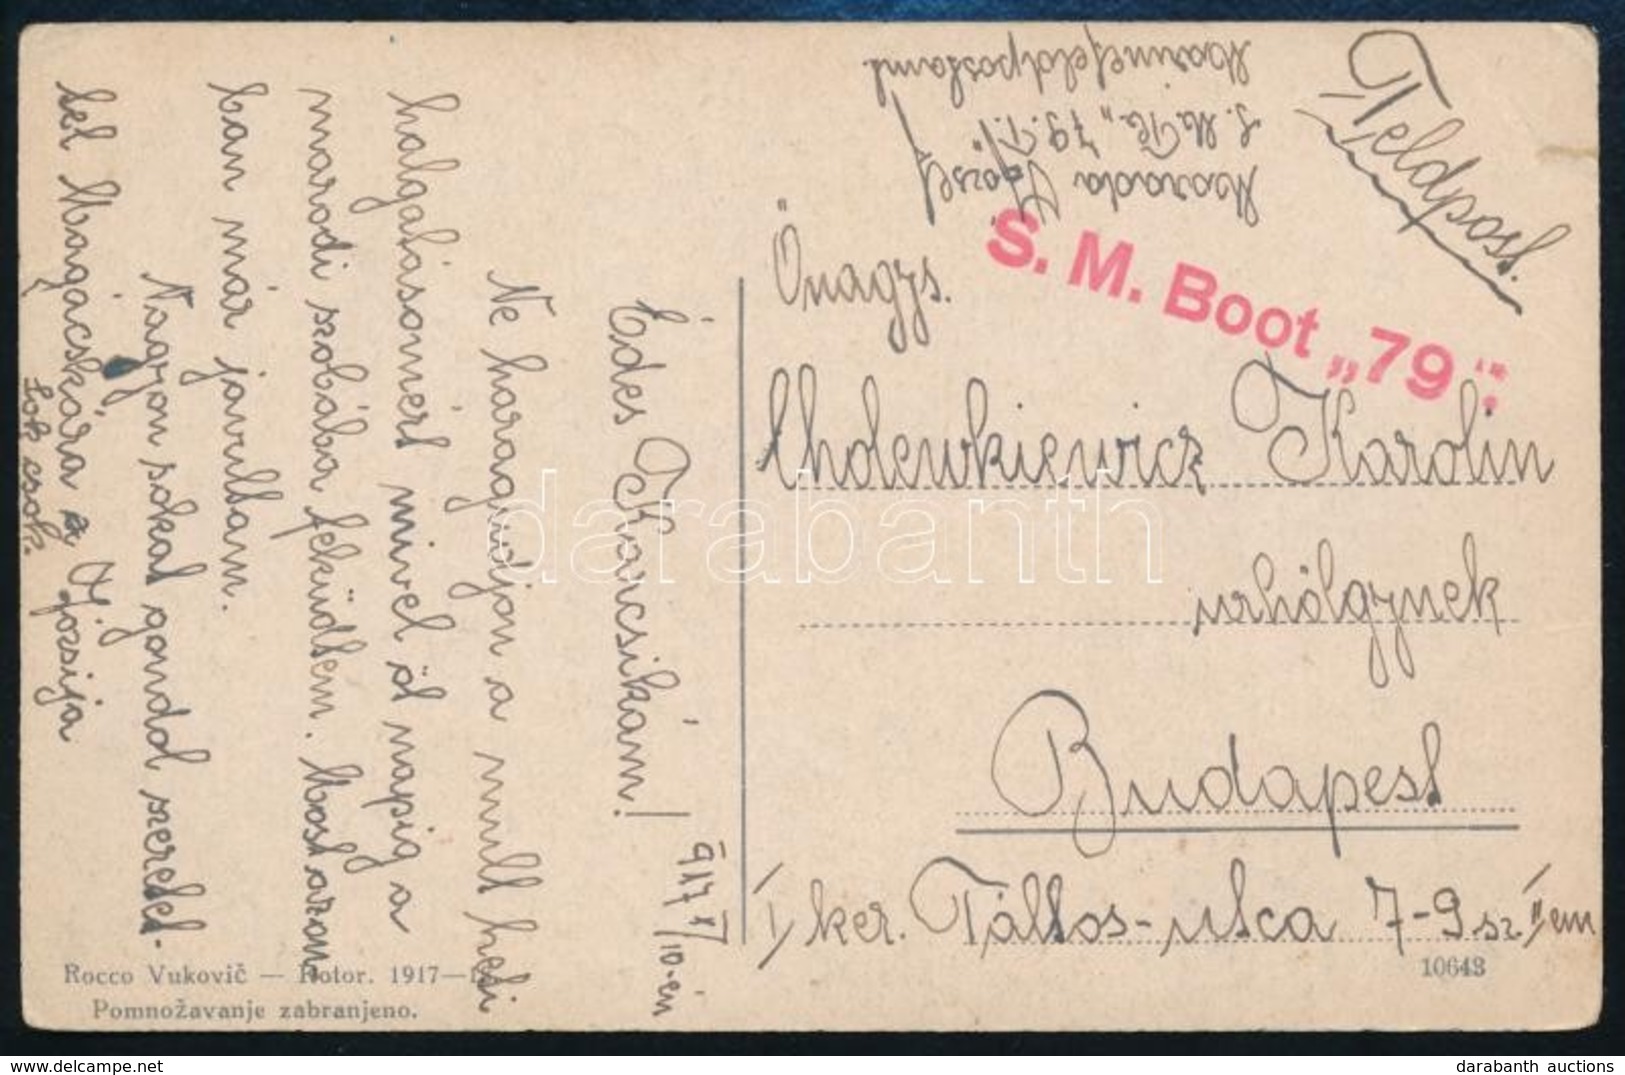 Feldpost.
József
S. M. Tb. „79. T."
Marinefeldpostamt
S. M. Boot „79".
Önagys.
Cholewkiewicz Karolin
urhölgynek
Budapest
I/ ker. Táltos-utca 7-9 sz. II/em
10643
917 V/10-én
Édes Karcsikám!
Ne haragudjon a mult heti
halgatásomért mivel öt napig a
marodi szobába feküdtem. Most azon
ban már javultam.
Nagyon sokat gondol szeretet-
tel Magácskára a Józsija
Sok csok.
Rocco Vukovič — Kotor. 1917—
Pomnožavanje zabranjeno.
darabanth
darabanth auctions